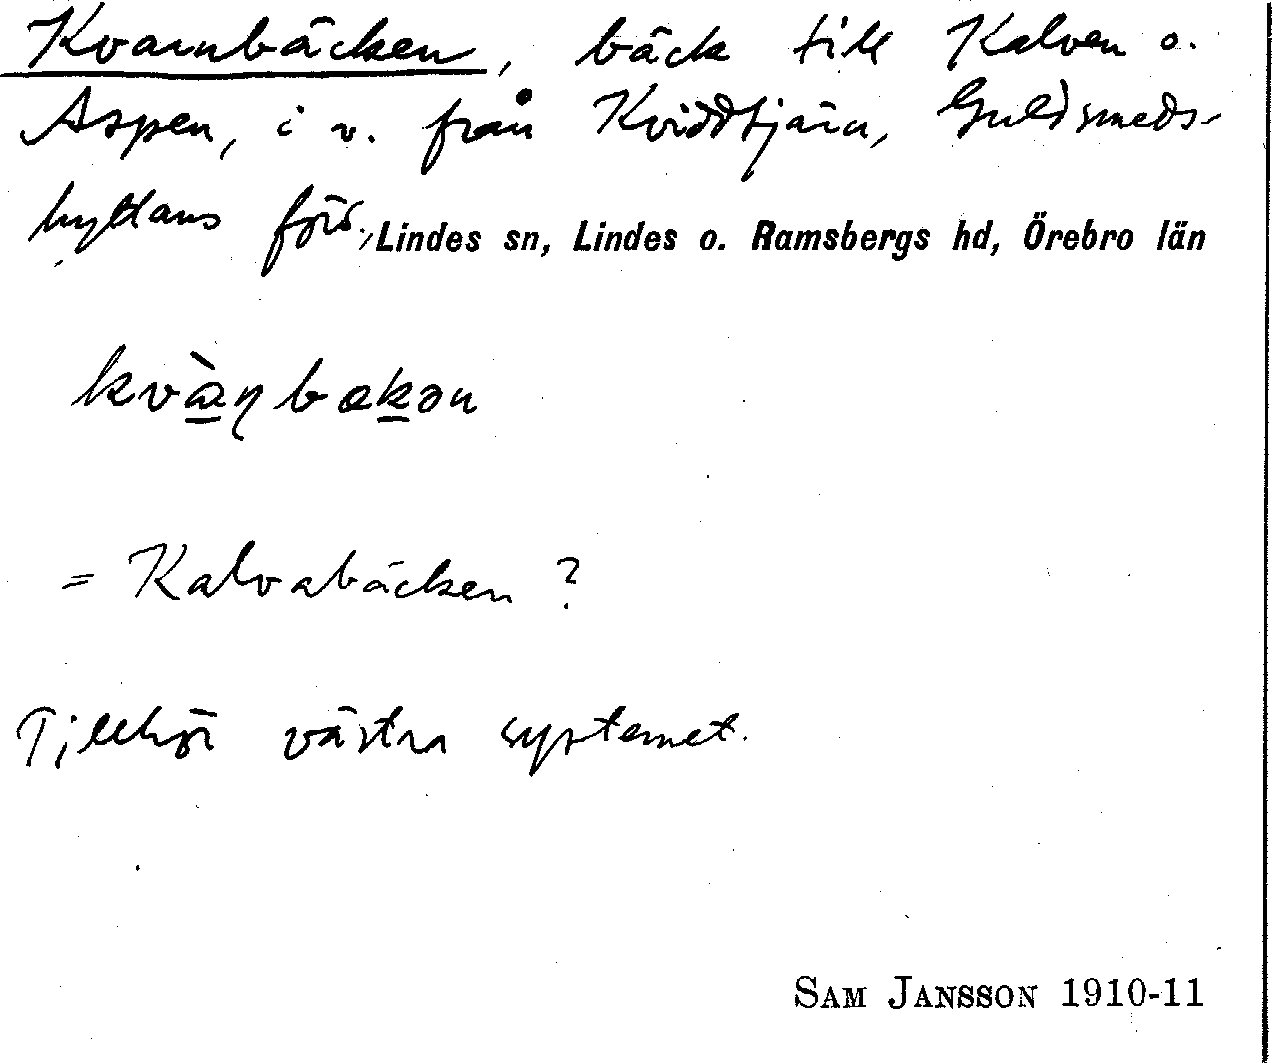 Kvarnbäcken, bäck till Kalven o.
Aspen, i v. från Kviddtjärn, Guldsmeds-
hyttans förs., Lindes sn, Lindes o. Ramsbergs hd, Örebro län
kvæ̀ɳbækən
= Kalvabäcken ?
Tillhör västra systemet.
SAM JANSSON 1910-11